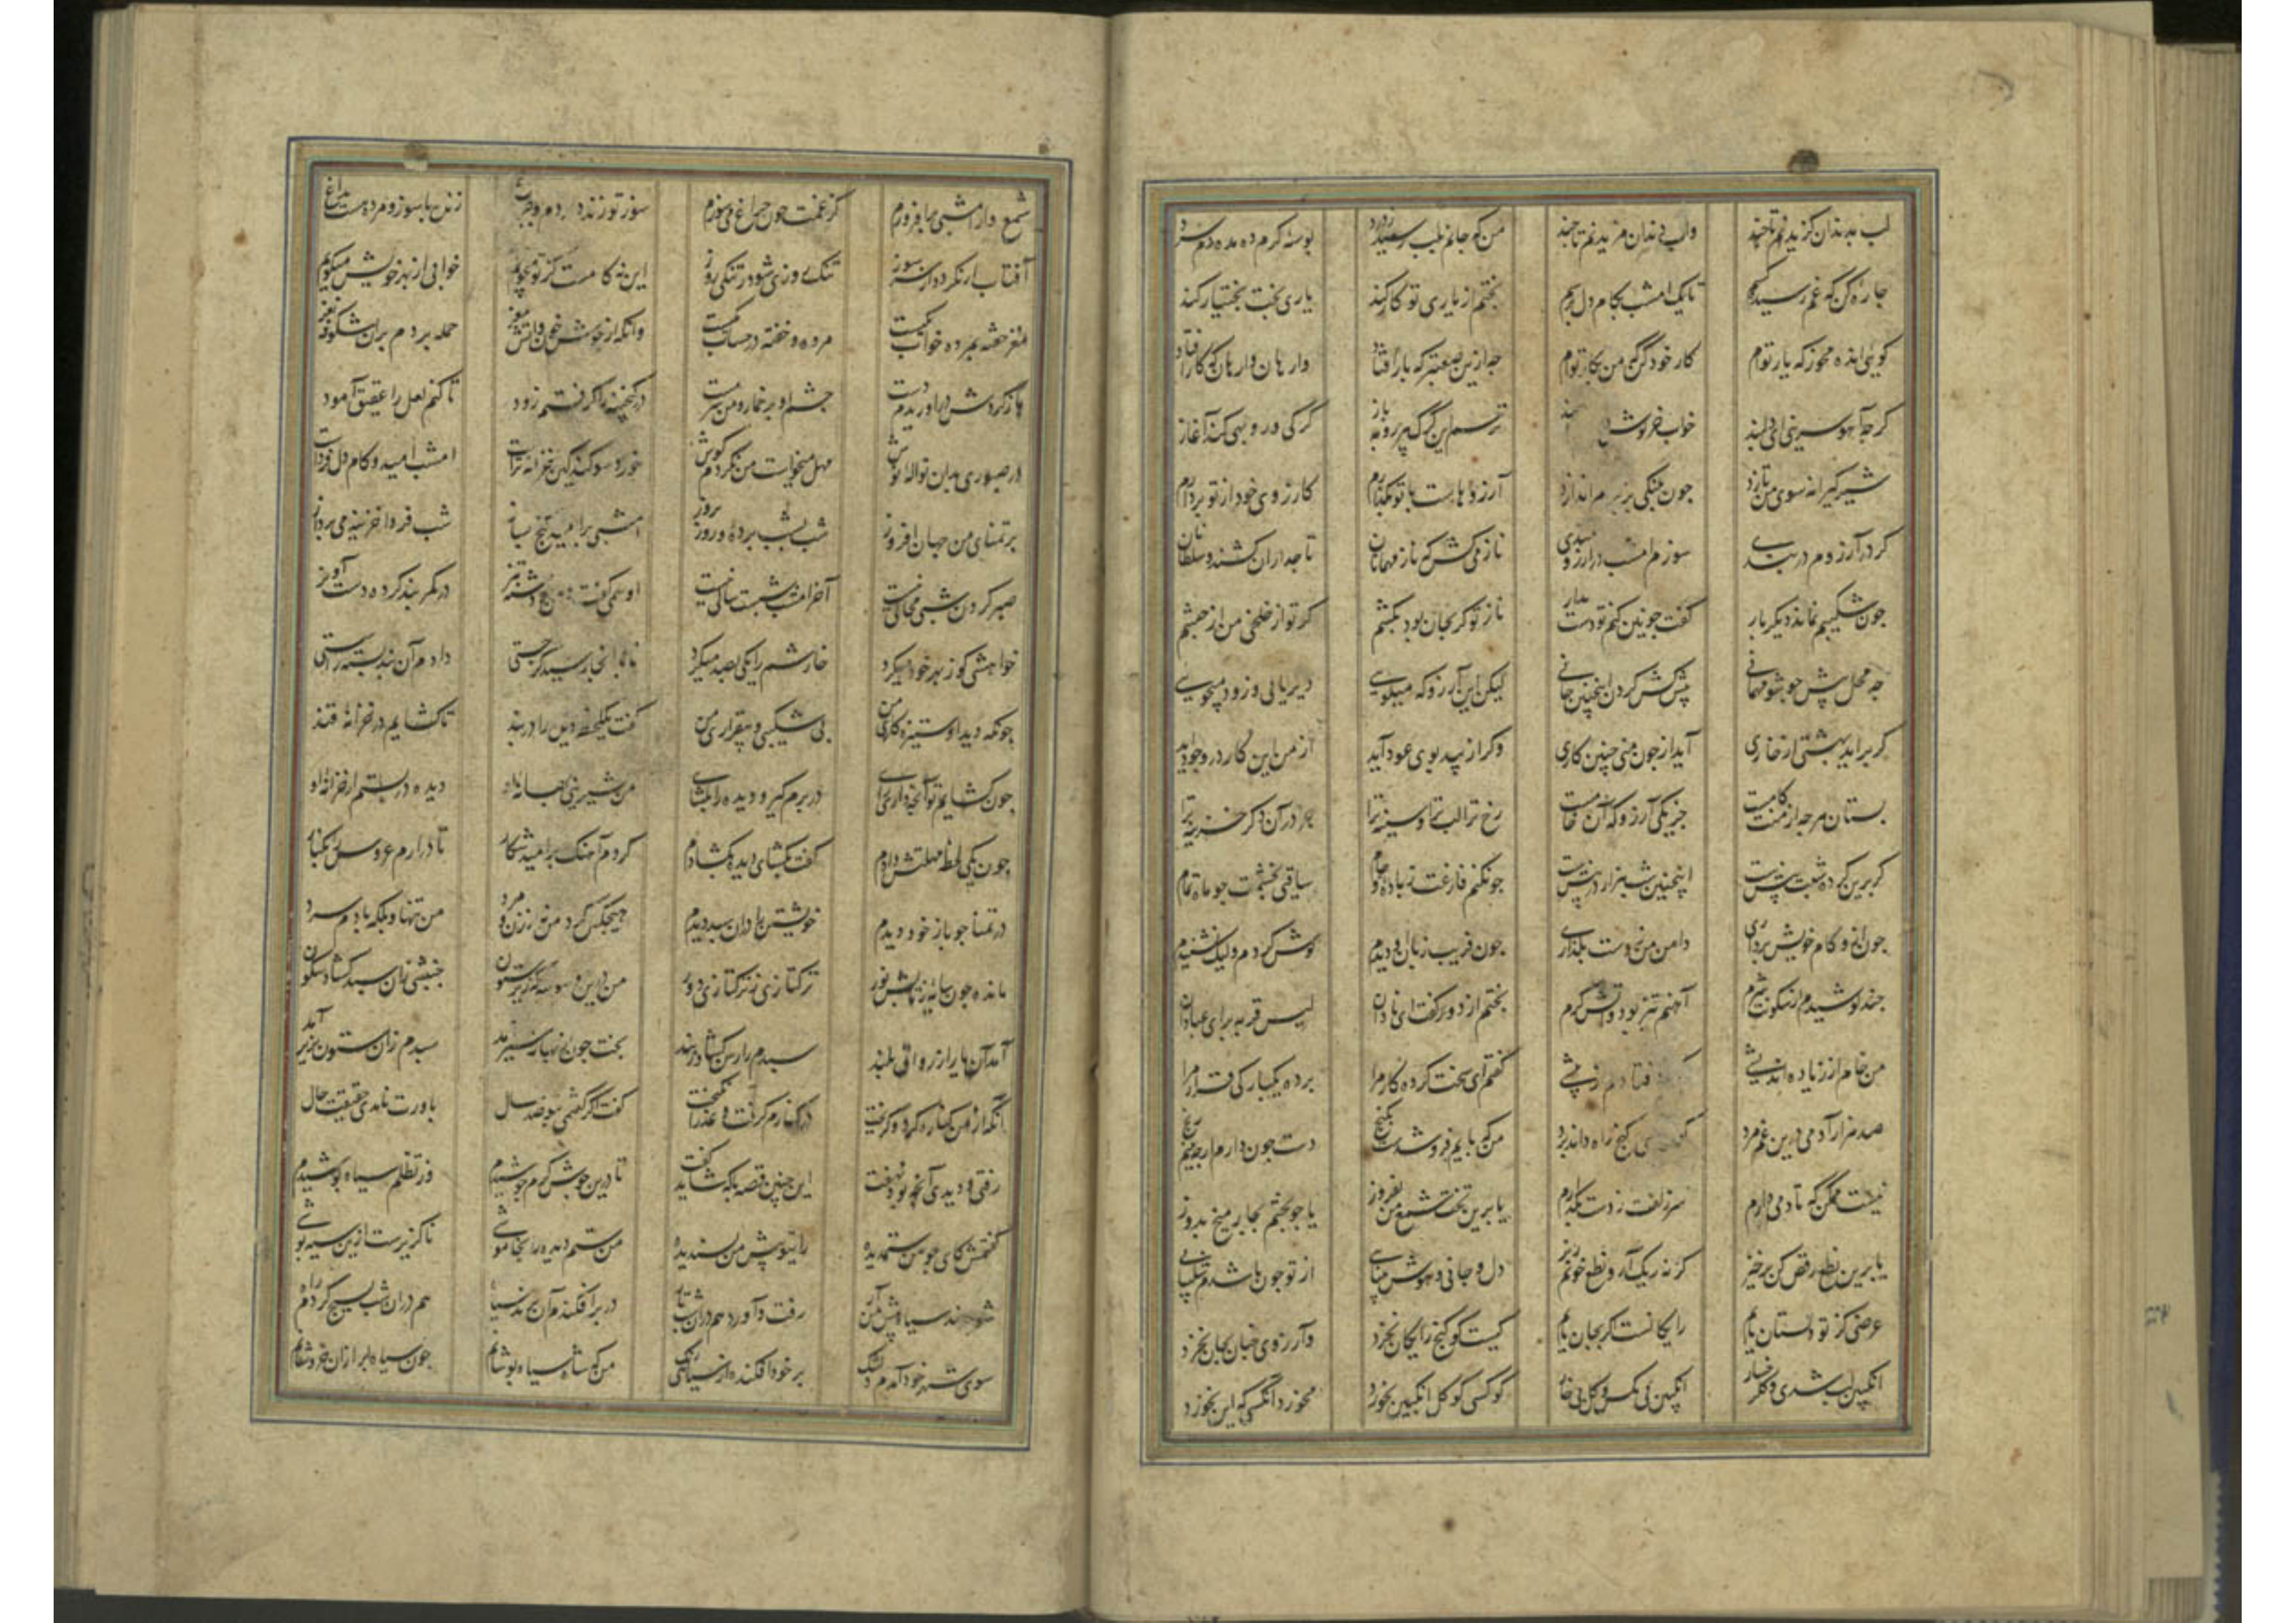 لب بدندان گزیدنم تا چند واب دندان مزیدنم تا چند من که جانم بلب رسید ز درد بوسه گرم ده مده دم سرد
چاره کن که غم رسیده کسم تا یک امشب بکام دل برسم بختم از یاری تو کار کند یاری بخت بختیار کند
گویی انده مخور که یار توام کار خود کن که من بکار توام چه ازین صعبتر که بار افتاد وارهان وارهان که کار افتاد
گرچه آهو سرینی ای دلبند خواب خرگوش ترسم این گرگ پیر روبه باز گرگی و روبهی کند آغاز
شیر گیرانه سوی من تازد چون پلنگی بزیرم اندازد آرزوهاست با تو بگذارم کارزوی خود از تو بردارم
گر در آرزوم در بندی میرم امشب در آرزومندی ناز می کش که ناز مهمانان تاجداران کشند و سلطانان
چون شکیبم نماند دیگر بار گفت چونین کنم تو دست بدار ناز تو گر بجان بود بکشم گر تو از خلخی من از حبشم
چه محل پیش چو تو مهمانی پیش کش کردن اینچنین جانی لیکن این آرزو که میگویی دیر یابی و زود میجویی
گر برآید بهشتی از خاری آید از چون منی چنین کاری وگر از بید بوی عود آید از من این کار در وجود آید
بستان هرچه از منت کامست جز یکی آرزو که آن خامست رخ ترا لب ترا و سینه ترا جز در آن دگر خزینه ترا
گر برین کرده شبت بیش است اینچنین شب هزار در پیش است چونکنم فارغت ز باده و جام ساقیی بخشمت چو ماه تمام
چون ازو کام خویش برداری دامن من ز دست بگذاری چون فریب زبان او دیدم گوش کردم ولیک نشنیدم
چند کوشیدم از سکونت شرم آهنم تیز بود و آتش گرم بختم از دور گفت ای نادان لیس قریة برای عبادان
من خام از زیاده اندیشی فتادم ز بیشی گفتم ای سخت کرده کار مرا برده یکبارگی قرار مرا
صد هزار آدمی درین غم مرد کسی گنج راه داند برد من که پایم فروشدست بگنج دست چون دارم ار چه بینم رنج
نیست ممکن که تا دمی دارم سر زلفت ز دست بگذارم یا برین تخت شمع من بفروز یا چو تختم بچار میخ بدوز
یا برین نطع رقص کن برخیز گرنه ریگ آر و نطع خونم ریز دل و جانی و هوش و بینایی از تو چون باشدم شکیبایی
غرضی کز تو دلستان یابم رایگانست گر بجان یابم کیست کو گنج رایگان نخرد وآرزوی چنان بجان نخرد
انگبین لب شدی و گل رخسار انگبین بی مگس و گل بی خار کو کسی کو گل انگبین نخورد مخورد آنکسی که این نخورد
شمع وار امشبی برافروزم کز غمت چون چراغ میسوزم سوز تو زنده دارم و چو چراغ زنده با سوز و مرده هست بداغ
آفتاب ار نگردد از سر سوز تنگ روزی شود ز تنگی روز این نه کامست کز تو میجویم خوابی از بهر خویش میگویم
مغز خفته بمرده خوابست مرده و خفته در حسابست وآنکه از جوش خون و آتش مغز حمله بردم بران شکوفه نغز
باز کردش در آوریدم دست چشم او پر خمار و من سرمست در گنجینه را گرفتم زود تا کنم لعل را عقیق آمود
در صبوری بدان نواله نوش مهل میخواست من نکردم گوش خورد سوگند کین خزانه تراست امشب امید و کام دل فرداست
امشبی بر امید گنج بساز شب فردا خزینه می پرداز برتمنای من جهان افروز شب بشب برده و روز بروز
صبر کردن شبی محالی نیست آخر امشب شبست سالی نیست او همی گفت و من چو دشنه تیز در کمر بند کرده دست آویز
خواهشی کو ز بهر خود میکرد خارشم را یکی بصد میکرد تا بدانجا رسید کز چستی دادم آن بند بسته را سستی
چونکه دید او ستیزه کاری من بی شکیبی و بیقراری من گفت یک لحظه دیده را در بند تا گشایم در خزانه قند
چون گشایم تو آنچه داری رای در برم گیر و دیده را بگشای من بشیرینی بهانه او دیده در بستم از خزانه او
چون یکی لحظه مهلتش دادم گفت بگشای دیده بگشادم کردم آهنگ بر امید شکار تا درآرم عروس را بکنار
در تمنا چو باز خود دیدم خویشتن را در آن سبد دیدم هیچکس گرد من نه از زن و مرد من تنها و بلکه با دم سرد
مانده چون سایه ز تابش نور ترکتازی ز ترکتازی دور من درین وسوسه که زیر ستون جنبشی زان سبد گشاد سکون
آمد آن یار از رواق بلند سبدم را رسن گشاد ز بند بخت چون از بهانه سیر آمد سبدم زان ستون بزیر آمد
آنکه از من کناره کرد و گریخت در کنارم گرفت و عذر انگیخت گفت اگر گفتمی بتو صد سال باورت نامدی حقیقت حال
رفتی و دیدی آنچه بود نهفت این چنین قصه با که شاید گفت تا درین جوش گرم جوشیدم وز تظلم سیاه پوشیدم
گفتمش کای چو من ستمدیده رای تو پیش من پسندیده من ستم دیده را بخاموشی ناگزیرست ازین سیه پوشی
شو پرند سیاه پیش من آر رفت و آورد هم در آن شب تار در بر افکندم آن پرند سیاه هم در آن شب بسیج کردم راه
سوی شهر خود آمدم دلتنگ بر خود افکنده از سیاهی رنگ من که شاه سیاه پوشانم چون سیاه ابر از آن خروشانم